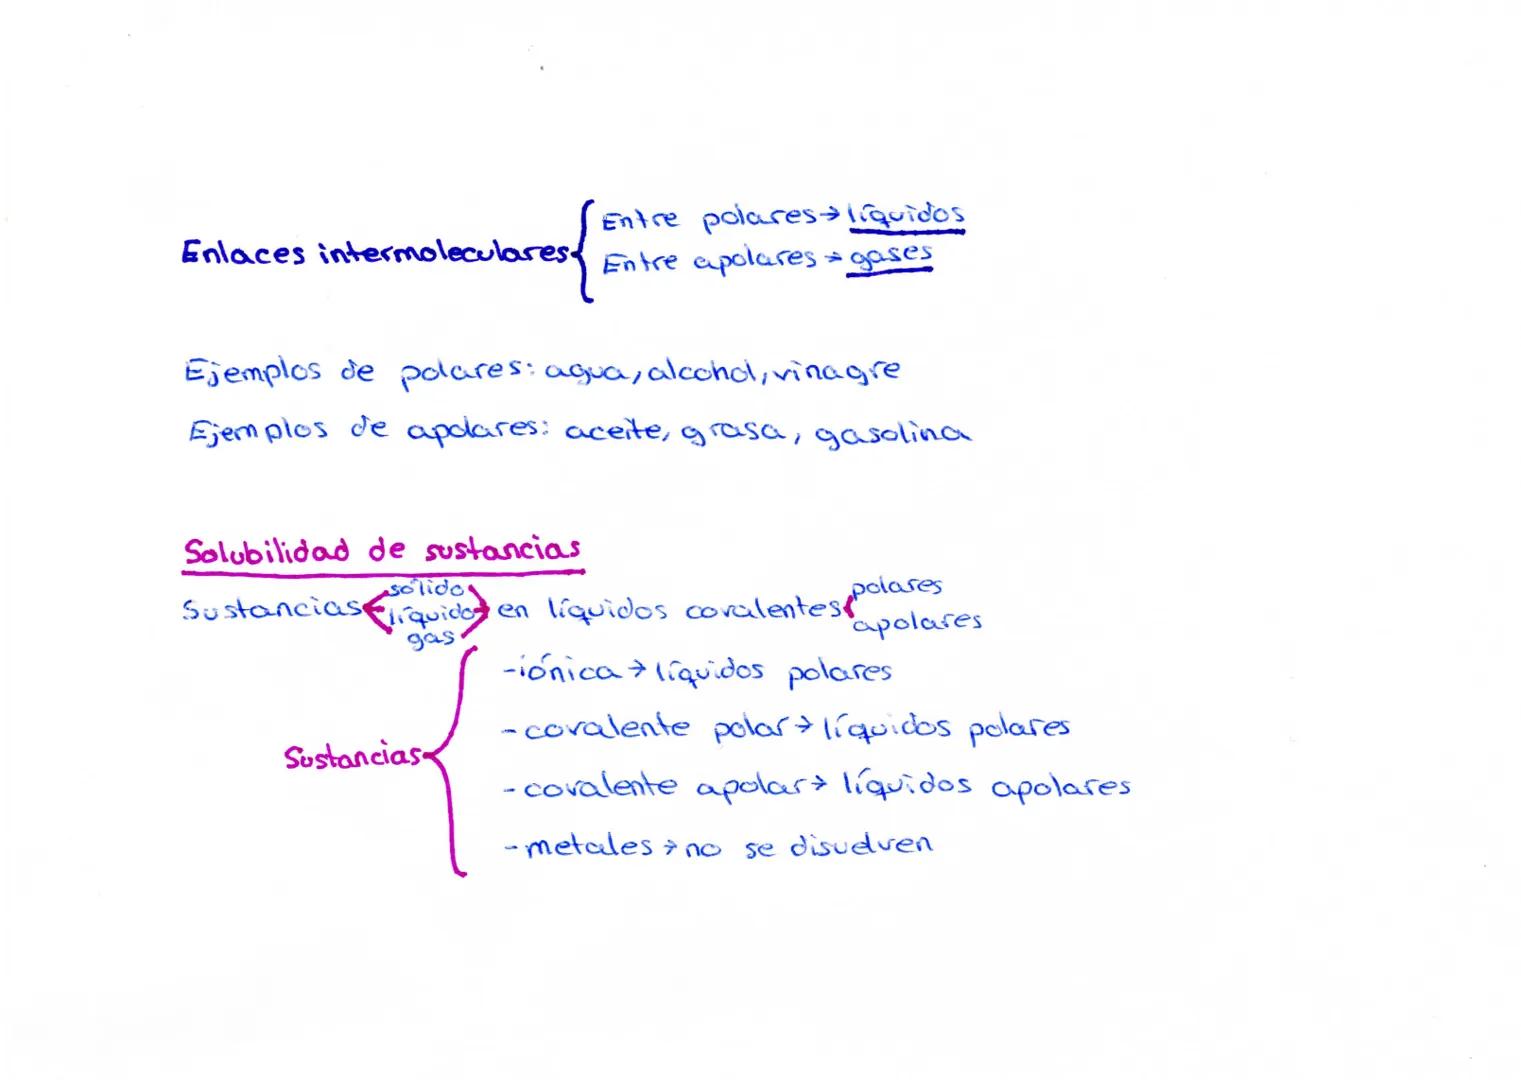 Enlaces intermoleculares
Entre polares → líquidos
Entre apolares → gases
Ejemplos de polares: agua, alcohol, vinagre
Ejemplos de apolares: aceite, grasa, gasolina
Solubilidad de sustancias
Sustancias sólido líquido gas en líquidos covalentes polares apolares
Sustancias
-iónica → líquidos polares
-covalente polar → líquidos polares
-covalente apolar → líquidos apolares
-metales → no se disuelven